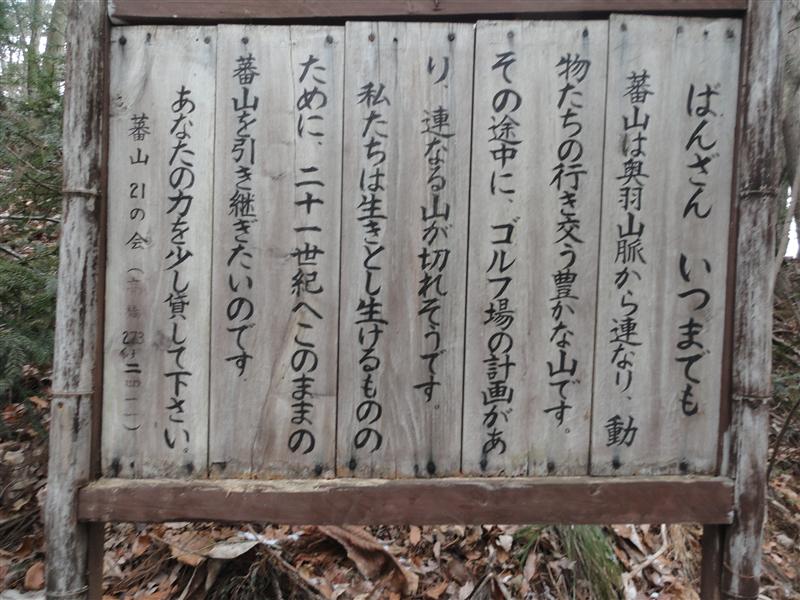 ばんざん いつまでも
蕃山は奥羽山脈から連なり、動
物たちの行き交う豊かな山です。
その途中に、ゴルフ場の計画があ
り、連なる山が切れそうです。
私たちは生きとし生けるものの
ために、二十一世紀へこのままの
蕃山を引き継ぎたいのです
あなたの力を少し貸して下さい。
蕃山21の会